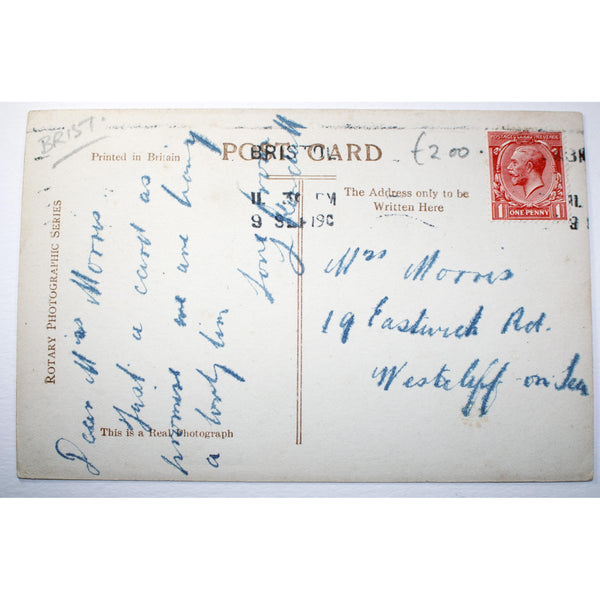 BRIST.
Printed in Britain
POST CARD
£2 00
BRISTOL
11 30 PM
9 SEP 19
POSTAGE REVENUE
ONE PENNY
The Address only to be
Written Here
ROTARY PHOTOGRAPHIC SERIES
Dear Mrs Morris
Just a card as
promise we are having
a lovely
Love from
This is a Real Photograph
Mrs Morris
19 Eastwich Rd.
Westcliff on Sea